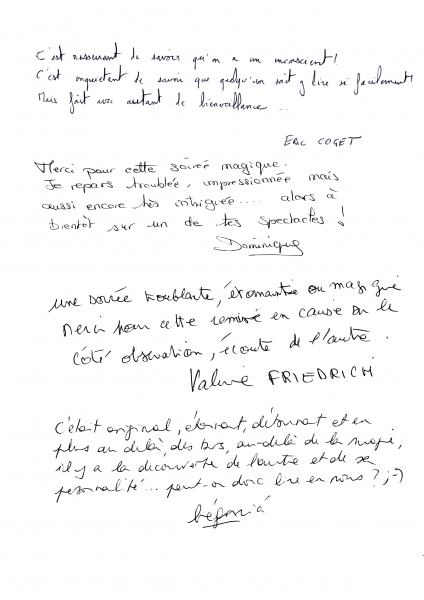 C'est rassurant de savoir qu'on a un inconscient!
C'est inquiétant de savoir que quelqu'un sait y lire si facilement!
Mais fait avec autant de bienveillance ...
ERIC COGET
Merci pour cette soirée magique.
Je repars troublée, impressionnée mais
aussi encore très intriguée.... alors à
bientôt sur un de tes spectacles !
Dominique
une soirée troublante, étonnante ou magique
Merci pour cette remise en cause sur le
côté observation, écoute de l'autre.
Valérie FRIEDRICH
C'était original, étonnant, détonnant et en
plus au delà des tours, au-delà de la magie,
il y a la découverte de l'autre et de sa
personnalité... peut-on donc lire en nous? ;-)